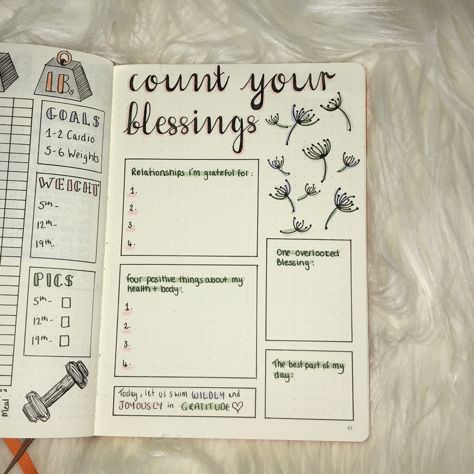 LBs
GOALS
1-2 Cardio
5-6 Weights
WEIGHT
5th-
12th-
19th-
PICS
5th-
12th-
19th-
Meal
count your
blessings
Relationships I'm grateful for:
1.
2.
3.
4.
Four positive things about my
health + body:
1.
2.
3.
4.
Today, let us swim WILDLY and
JOYOUSLY in GRATITUDE♡
One overlooked
Blessing:
The best part of my
day: